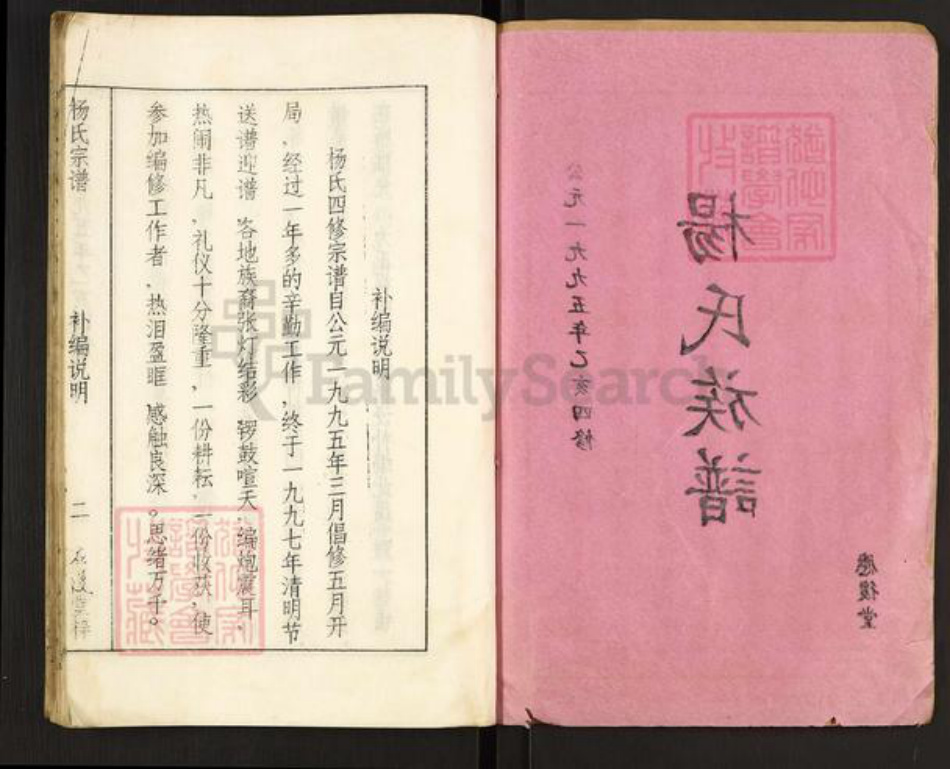 楊氏族譜
公元一九九五年乙亥四修
應復堂
补编说明
杨氏四修宗谱自公元一九九五年三月倡修五月开
局、经过一年多的辛勤工作,终于一九九七年清明节
送谱迎谱、各地族裔张灯结彩、锣鼓喧天、编炮震耳、
热闹非凡、礼仪十分隆重,一份耕耘,一份收获,使
参加编修工作者、热泪盈眶、感触良深。思绪万千。
杨氏宗谱
补编说明
二
FamilySearch